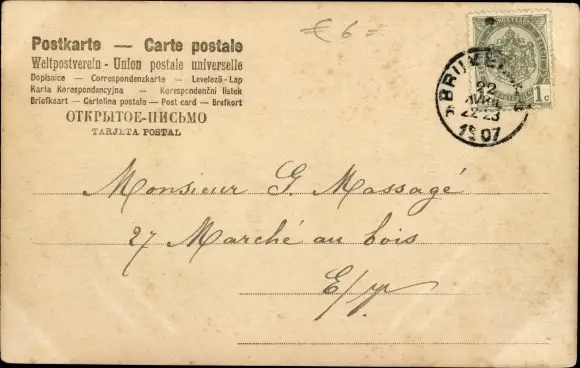 € 6 =
Postkarte — Carte postale
Weltpostverein - Union postale universelle
Dopisnice — Correspondenzkarte — Levelező-Lap
Karta Korespondencyjna — Korespondenční lístek
Briefkaart - Cartolina postale - Post card - Brefkort
ОТКРЫТОЕ-ПИСЬМО
TARJETA POSTAL
1c
22
22-23
1907
Monsieur G. Massagé
27 Marché au bois
E/V